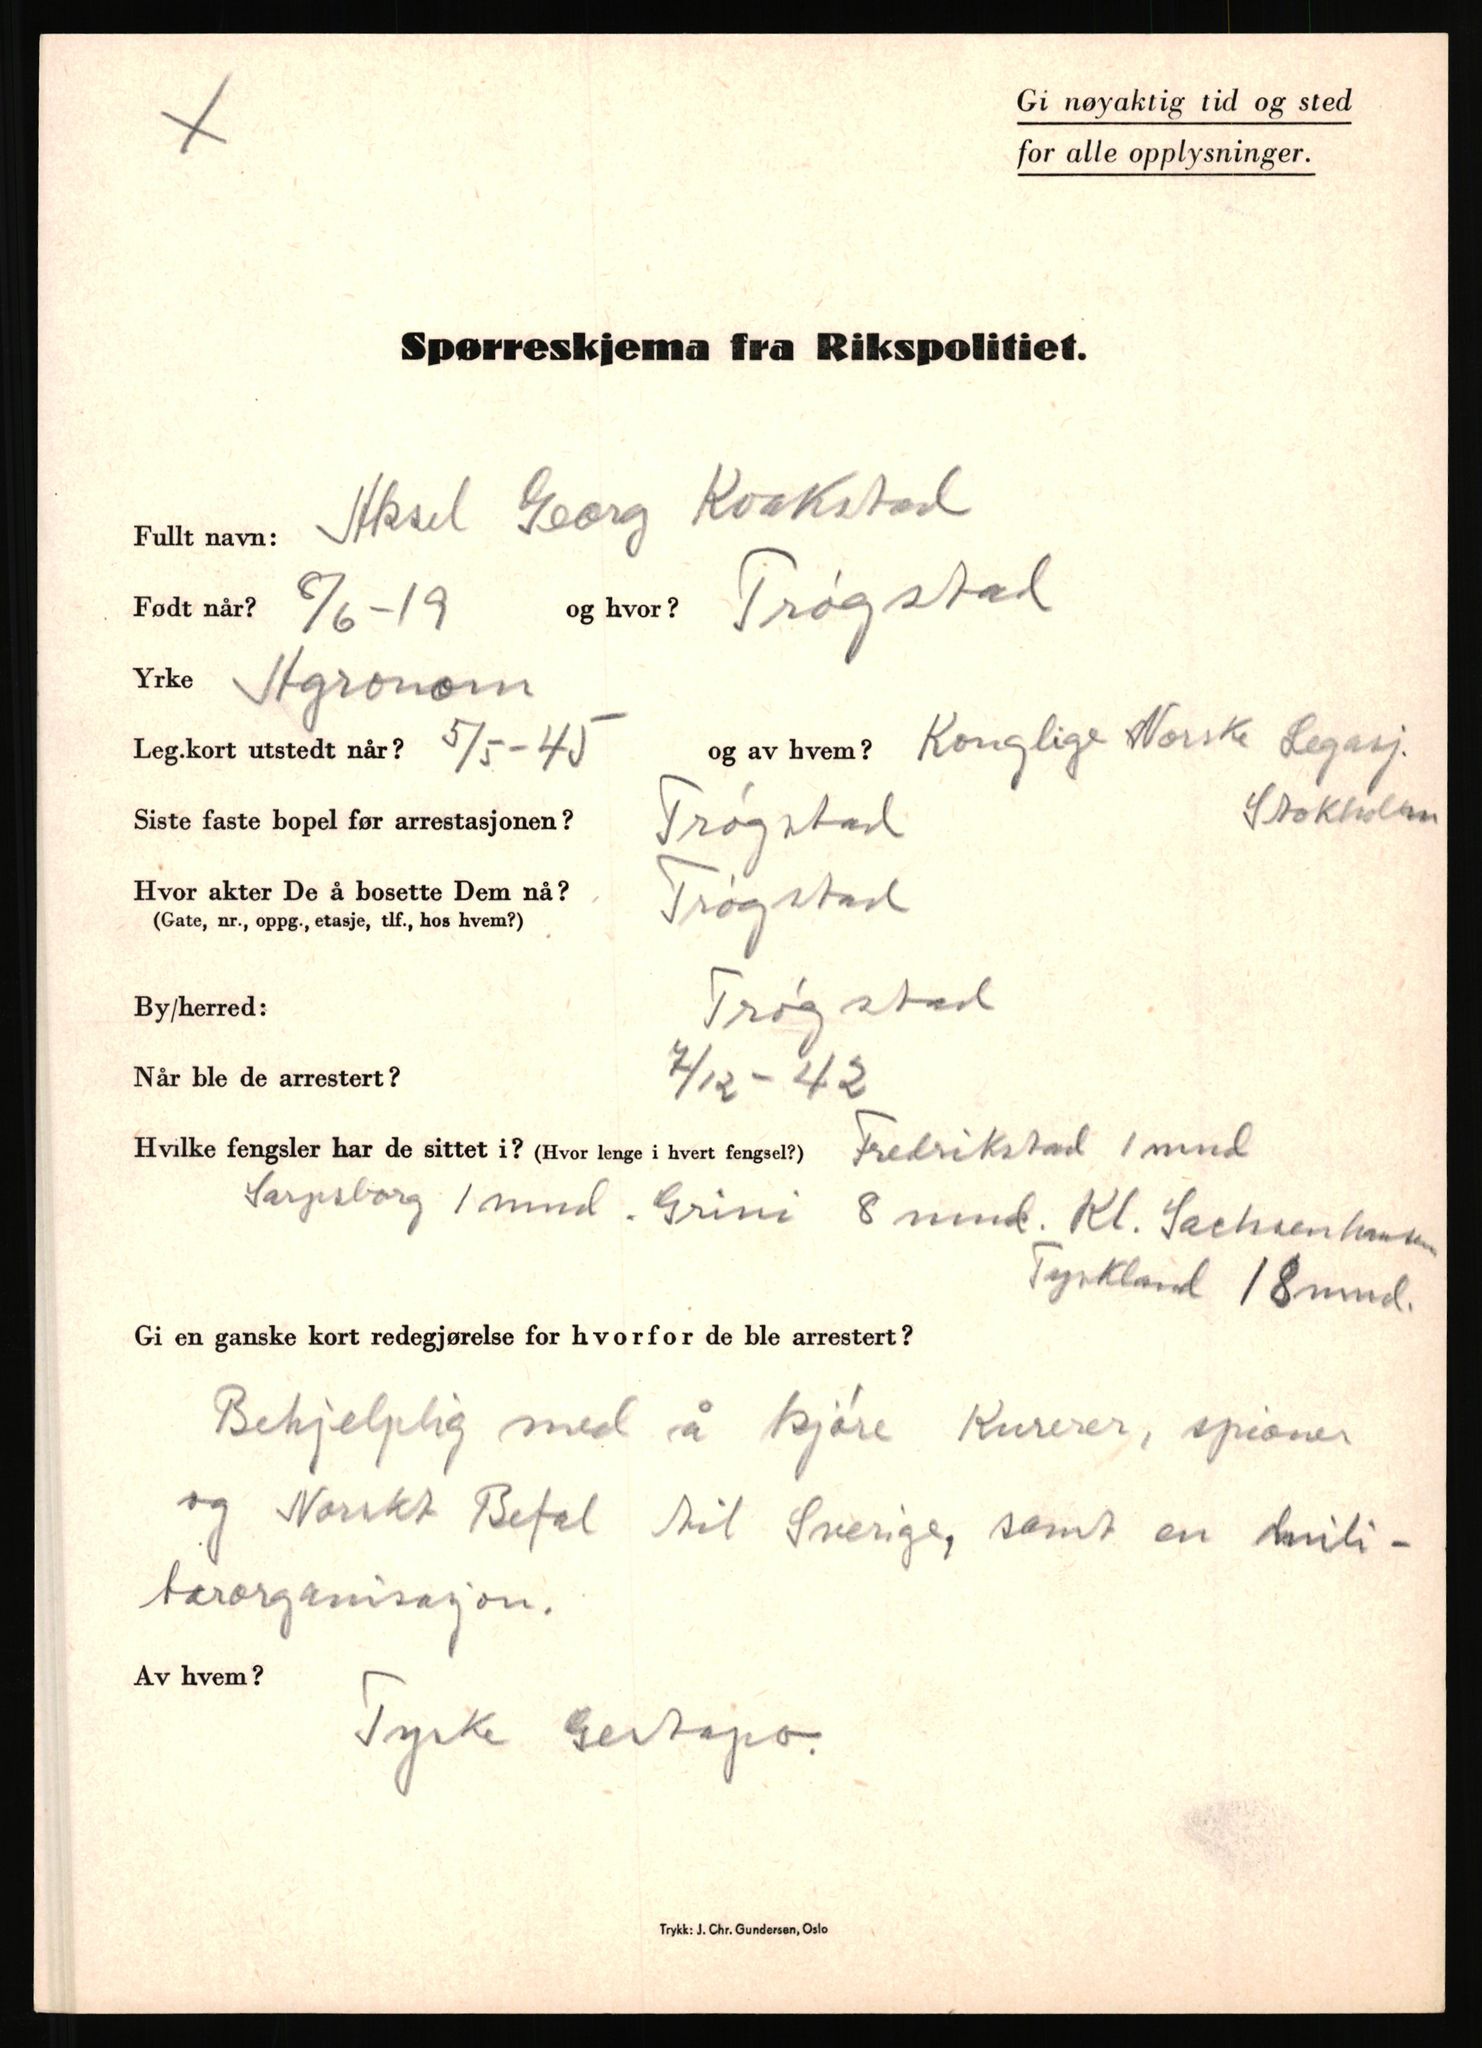 Gi nøyaktig tid og sted
for alle opplysninger.
Spørreskjema fra Rikspolitiet.
Fullt navn: Aksel Georg Kvakstad
Født når? 8/6-19 og hvor? Trøgstad
Yrke Agronom
Leg.kort utstedt når? 5/5-45 og av hvem? Konglige Norske Legasj.
Stokholm
Siste faste bopel før arrestasjonen? Trøgstad
Hvor akter De å bosette Dem nå? Trøgstad
(Gate, nr., oppg., etasje, tlf., hos hvem?)
By/herred: Trøgstad
Når ble de arrestert? 7/12-42
Hvilke fengsler har de sittet i? (Hvor lenge i hvert fengsel?) Fredrikstad 1 mnd
Sarpsborg 1 mnd. Grini 8 mnd. Kl. Sachsenhausen
Tyskland 18 mnd.
Gi en ganske kort redegjørelse for hvorfor de ble arrestert?
Behjelplig med å kjøre Kurerer, spioner
og Norskt Befal til Sverige, samt en mili-
tærorganisasjon.
Av hvem?
Tyske Gestapo.
Trykk: J. Chr. Gundersen, Oslo